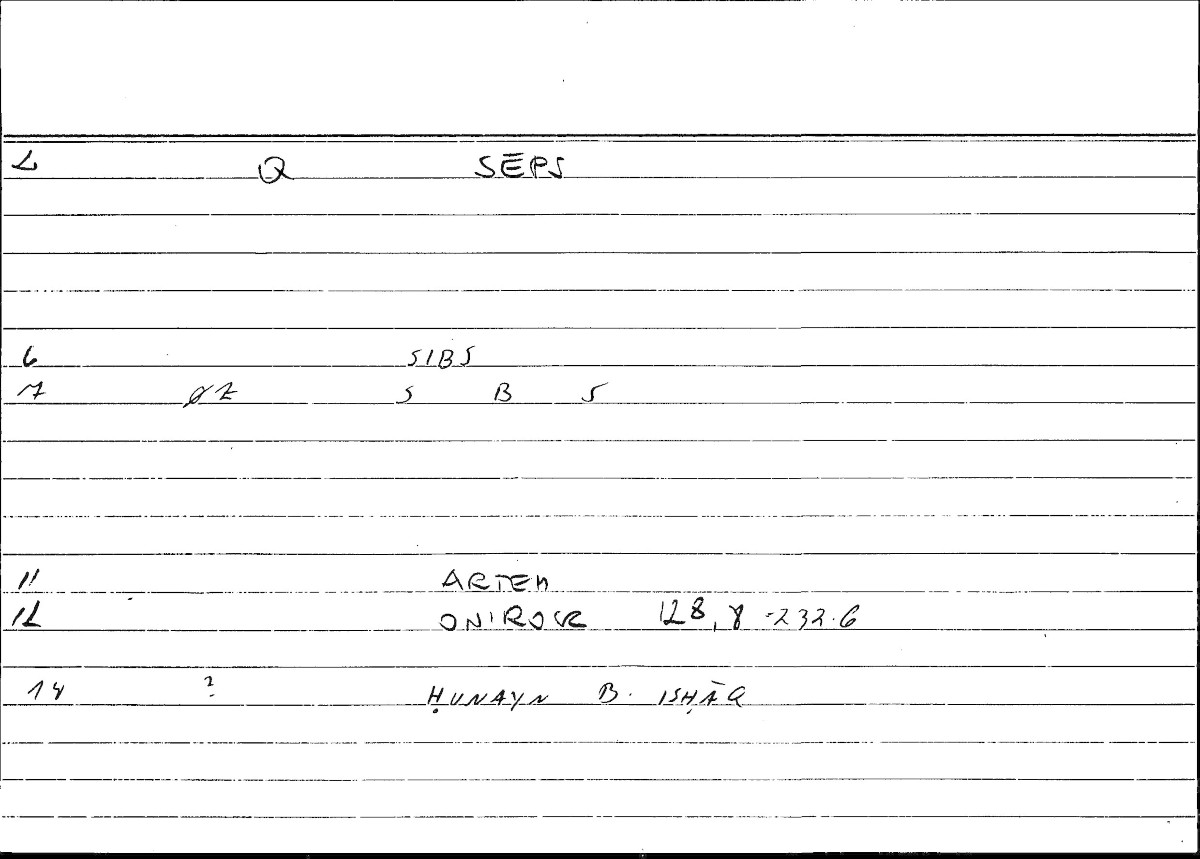 2 Q SĒPS
6 SIBS
7 ØZ S B S
11 ARTEM
12 ONIROCR 128,8-232.6
14 ? ḤUNAYN B. ISḤĀQ